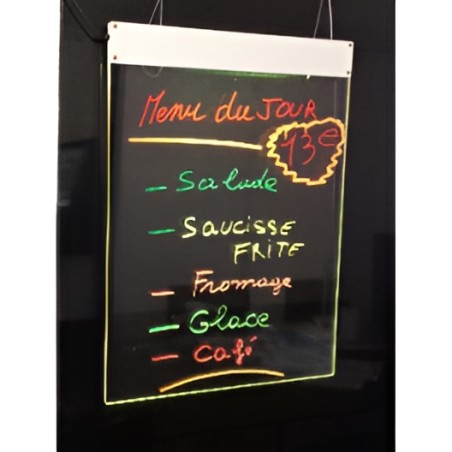 Menu du JOUR
13€
- Salade
- SAUCISSE
FRITE
- Fromage
- Glace
- Café